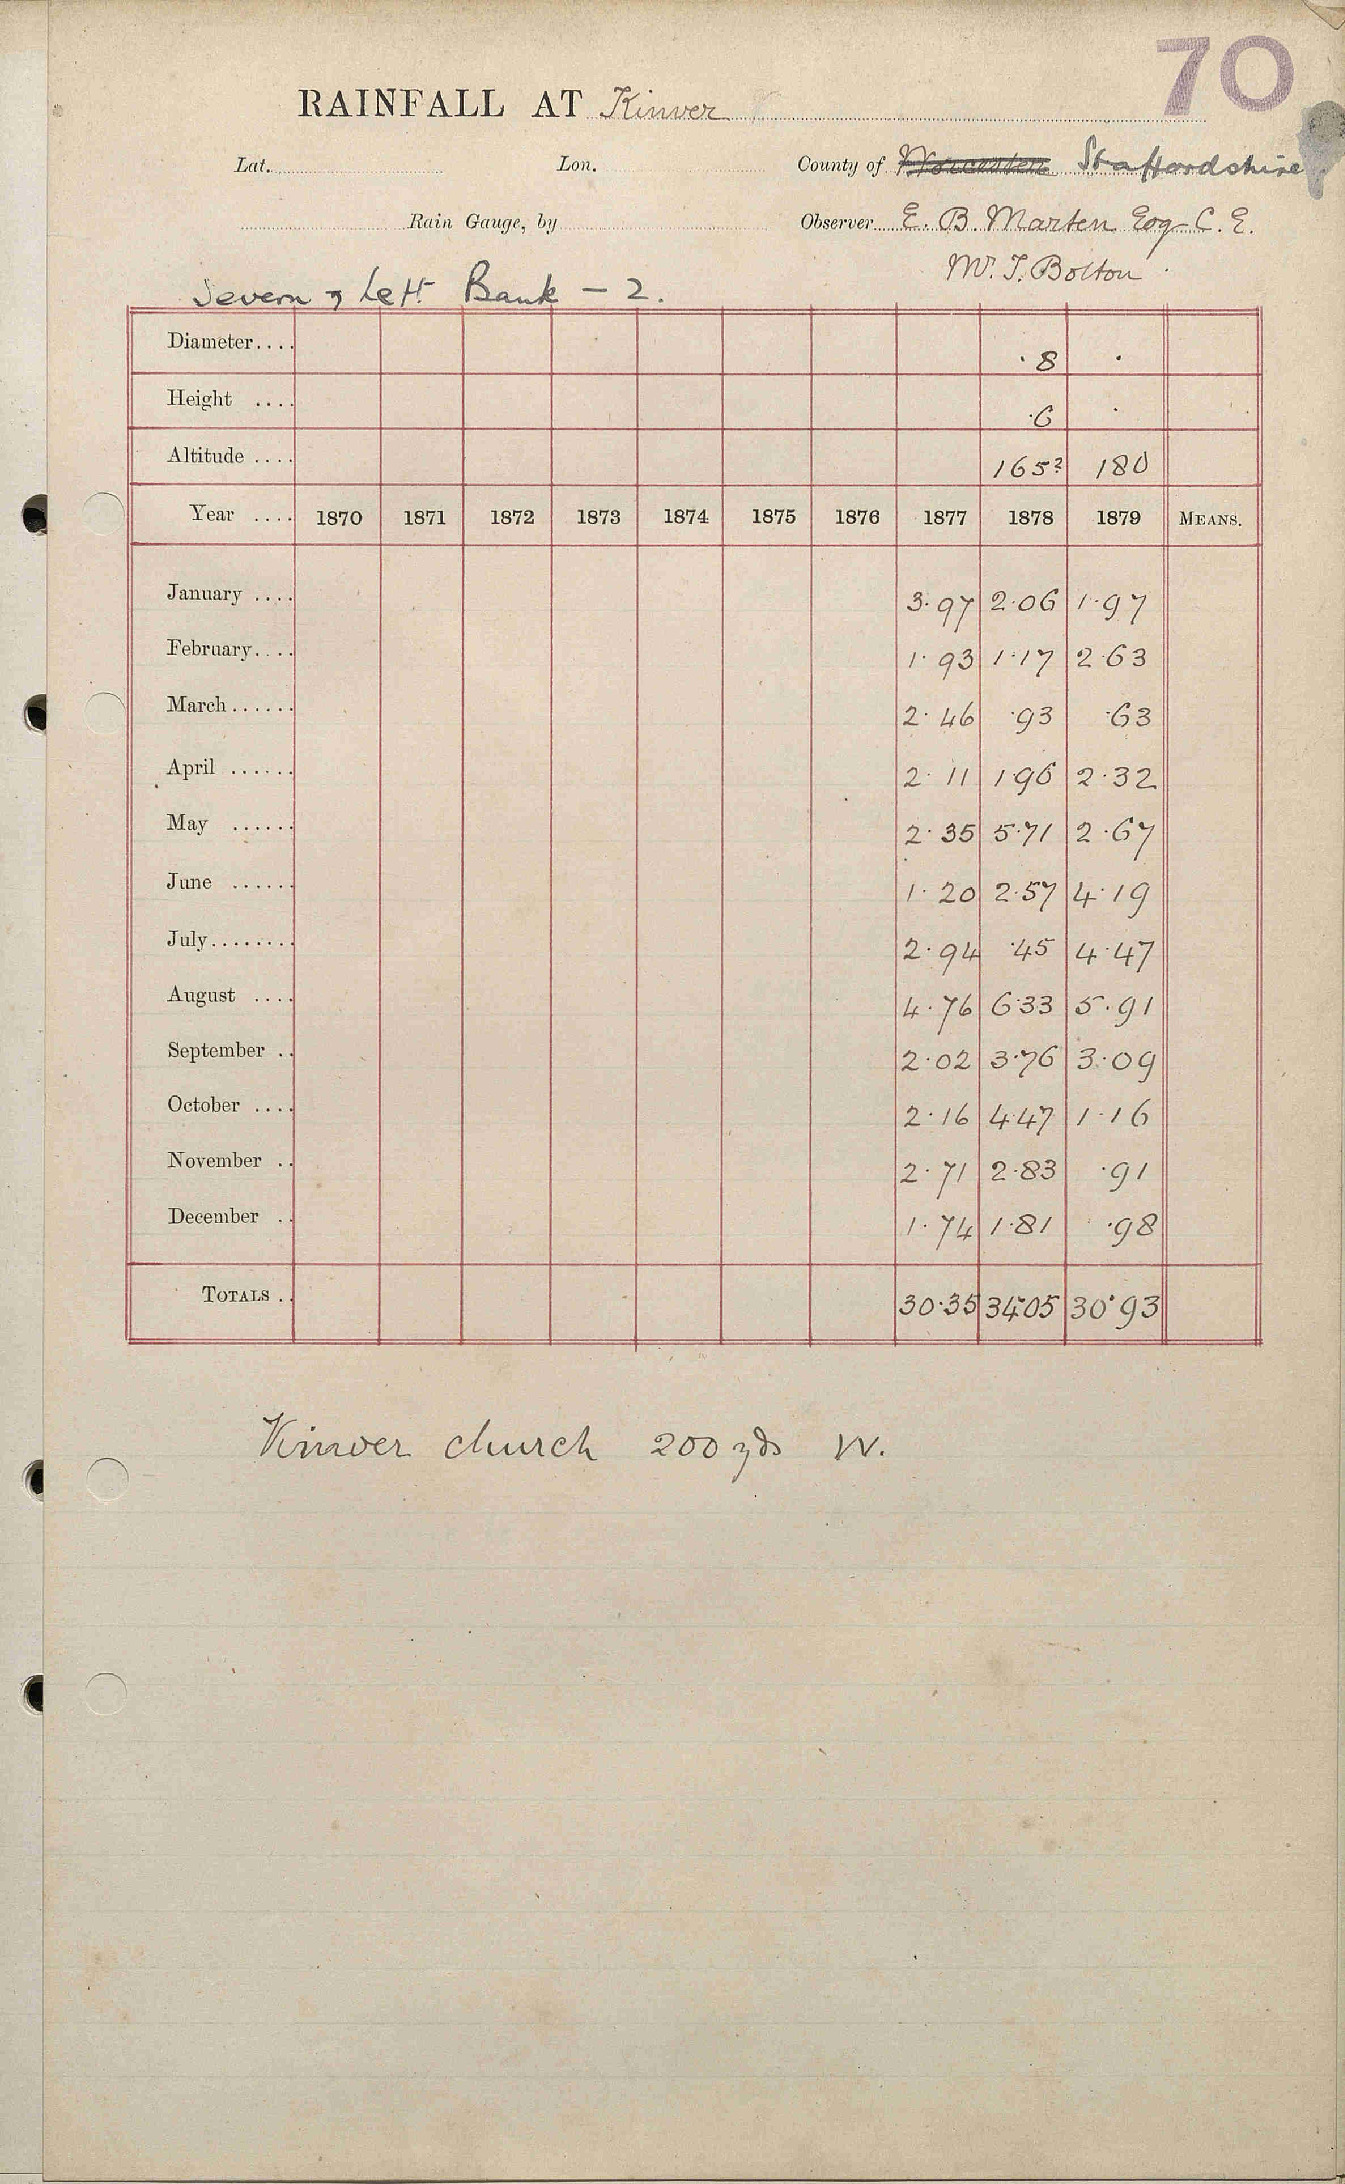 70
RAINFALL AT Kinver
Lat. Lon. County of Worcester Staffordshire
Rain Gauge, by Observer E. B. Marten Esq C. E.
Mr. T. Bolton
Severn & Left Bank - 2.
Diameter.... ·8 ·
Height .... ·6 ·
Altitude .... 165? 180
Year .... 1870 1871 1872 1873 1874 1875 1876 1877 1878 1879 MEANS.
January .... 3·97 2·06 1·97
February.... 1·93 1·17 2·63
March...... 2·46 ·93 ·63
April ...... 2·11 1·96 2·32
May ...... 2·35 5·71 2·67
June ...... 1·20 2·57 4·19
July........ 2·94 ·45 4·47
August .... 4·76 6·33 5·91
September .. 2·02 3·76 3·09
October .... 2·16 4·47 1·16
November .. 2·71 2·83 ·91
December .. 1·74 1·81 ·98
TOTALS .. 30·35 34·05 30·93
Kinver church 200 yds W.